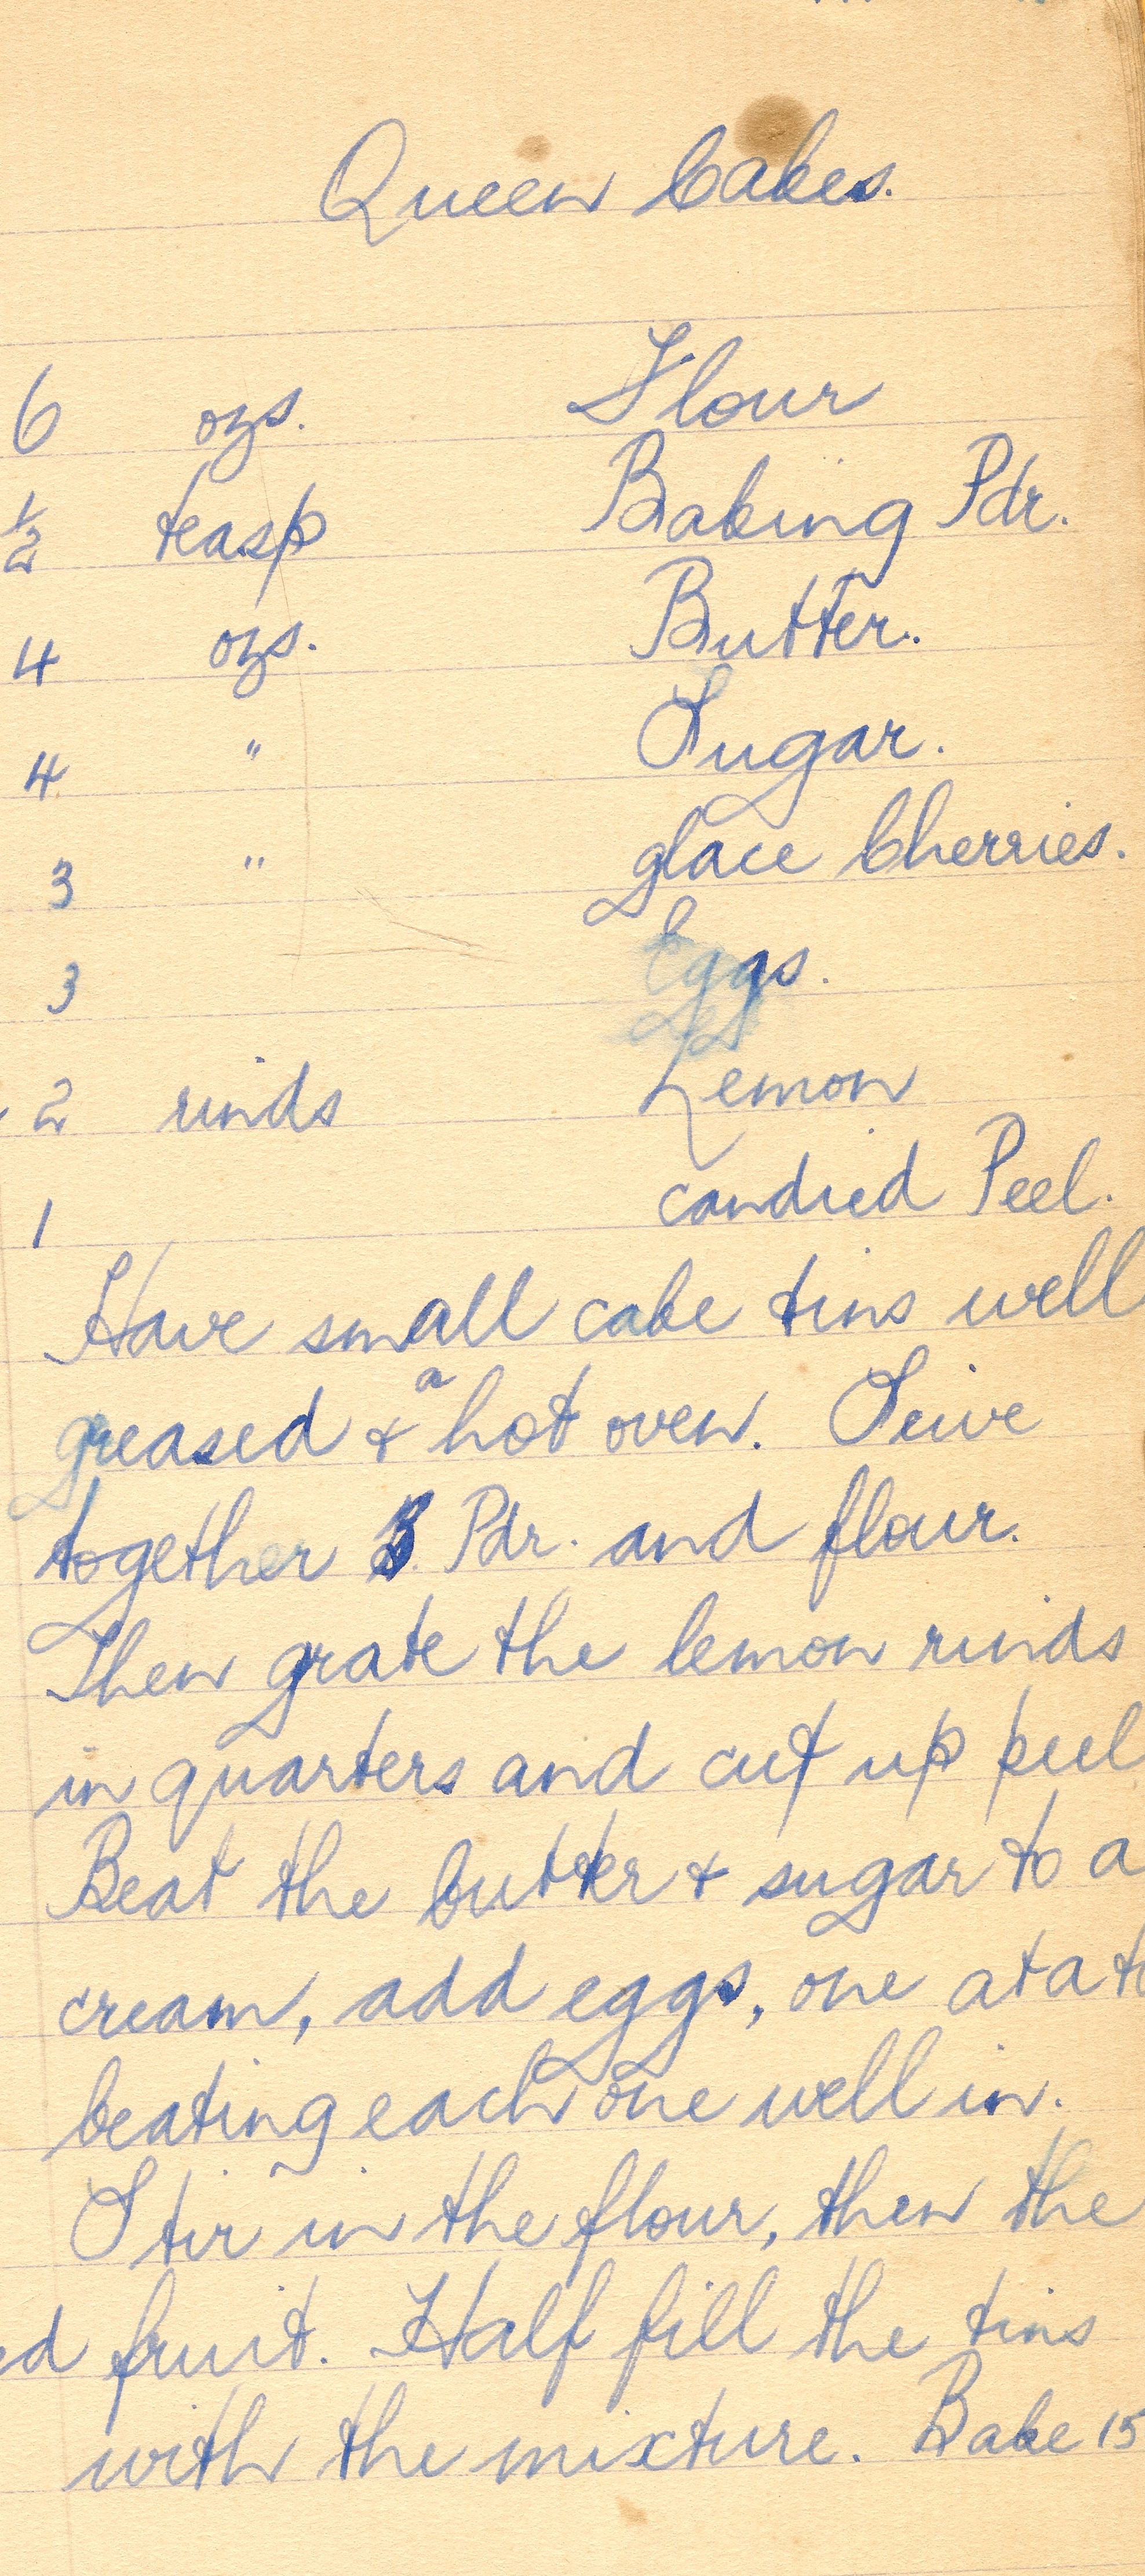 Queen Cakes.
6 ozs. Flour
1/2 teasp Baking Pdr.
4 ozs. Butter.
4 " Sugar.
3 " glace Cherries.
3 Eggs.
2 rinds Lemon
1 candied Peel.
Have small cake tins well
greased & a hot oven. Seive
together B. Pdr. and flour.
Then grate the lemon rinds
in quarters and cut up peel
Beat the butter & sugar to a
cream, add eggs, one at a
beating each one well in.
Stir in the flour, then the
fruit. Half fill the tins
with the mixture. Bake 15